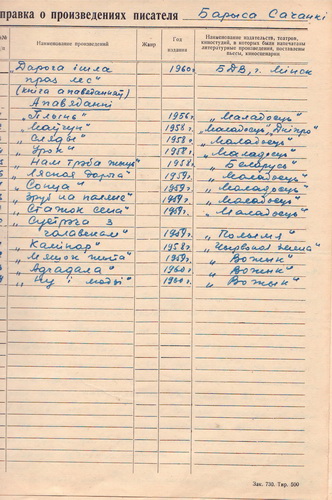 правка о произведениях писателя Барыса Сачанкі
Наименование произведений
Жанр
Год издания
Наименование издательств, театров, киностудий, в которых были напечатаны литературные произведения, поставлены пьесы, киносценарии
„Дарога ішла праз лес" 1960 БДВ, г. Мінск
(кніга апавяданняў)
Апавяданні
1956г. „Маладосць"
1958г. „Маладосць", „Дніпро"
„Сляды" 1958г. „Маладосць"
„Урок" 1958г. „Маладосць"
„Нам трэба жыць" 1958г. „Беларусь"
„Лясная дарога" 1959г. „Маладосць"
„Сонца" 1959г. „Маладосць"
„Зруб на паляне" 1959г. „Маладосць"
„Стажок сена" 1959г. „Маладосць"
„Сустрэча з чалавекам" 1959г. „Полымя"
1958г. „Чырвоная змена"
„Мяшок жыта" 1959г. „Вожык"
„Адгадала" 1960г. „Вожык"
„Ну і людзі" 1960г. „Вожык"
Зак. 750. Тир. 500